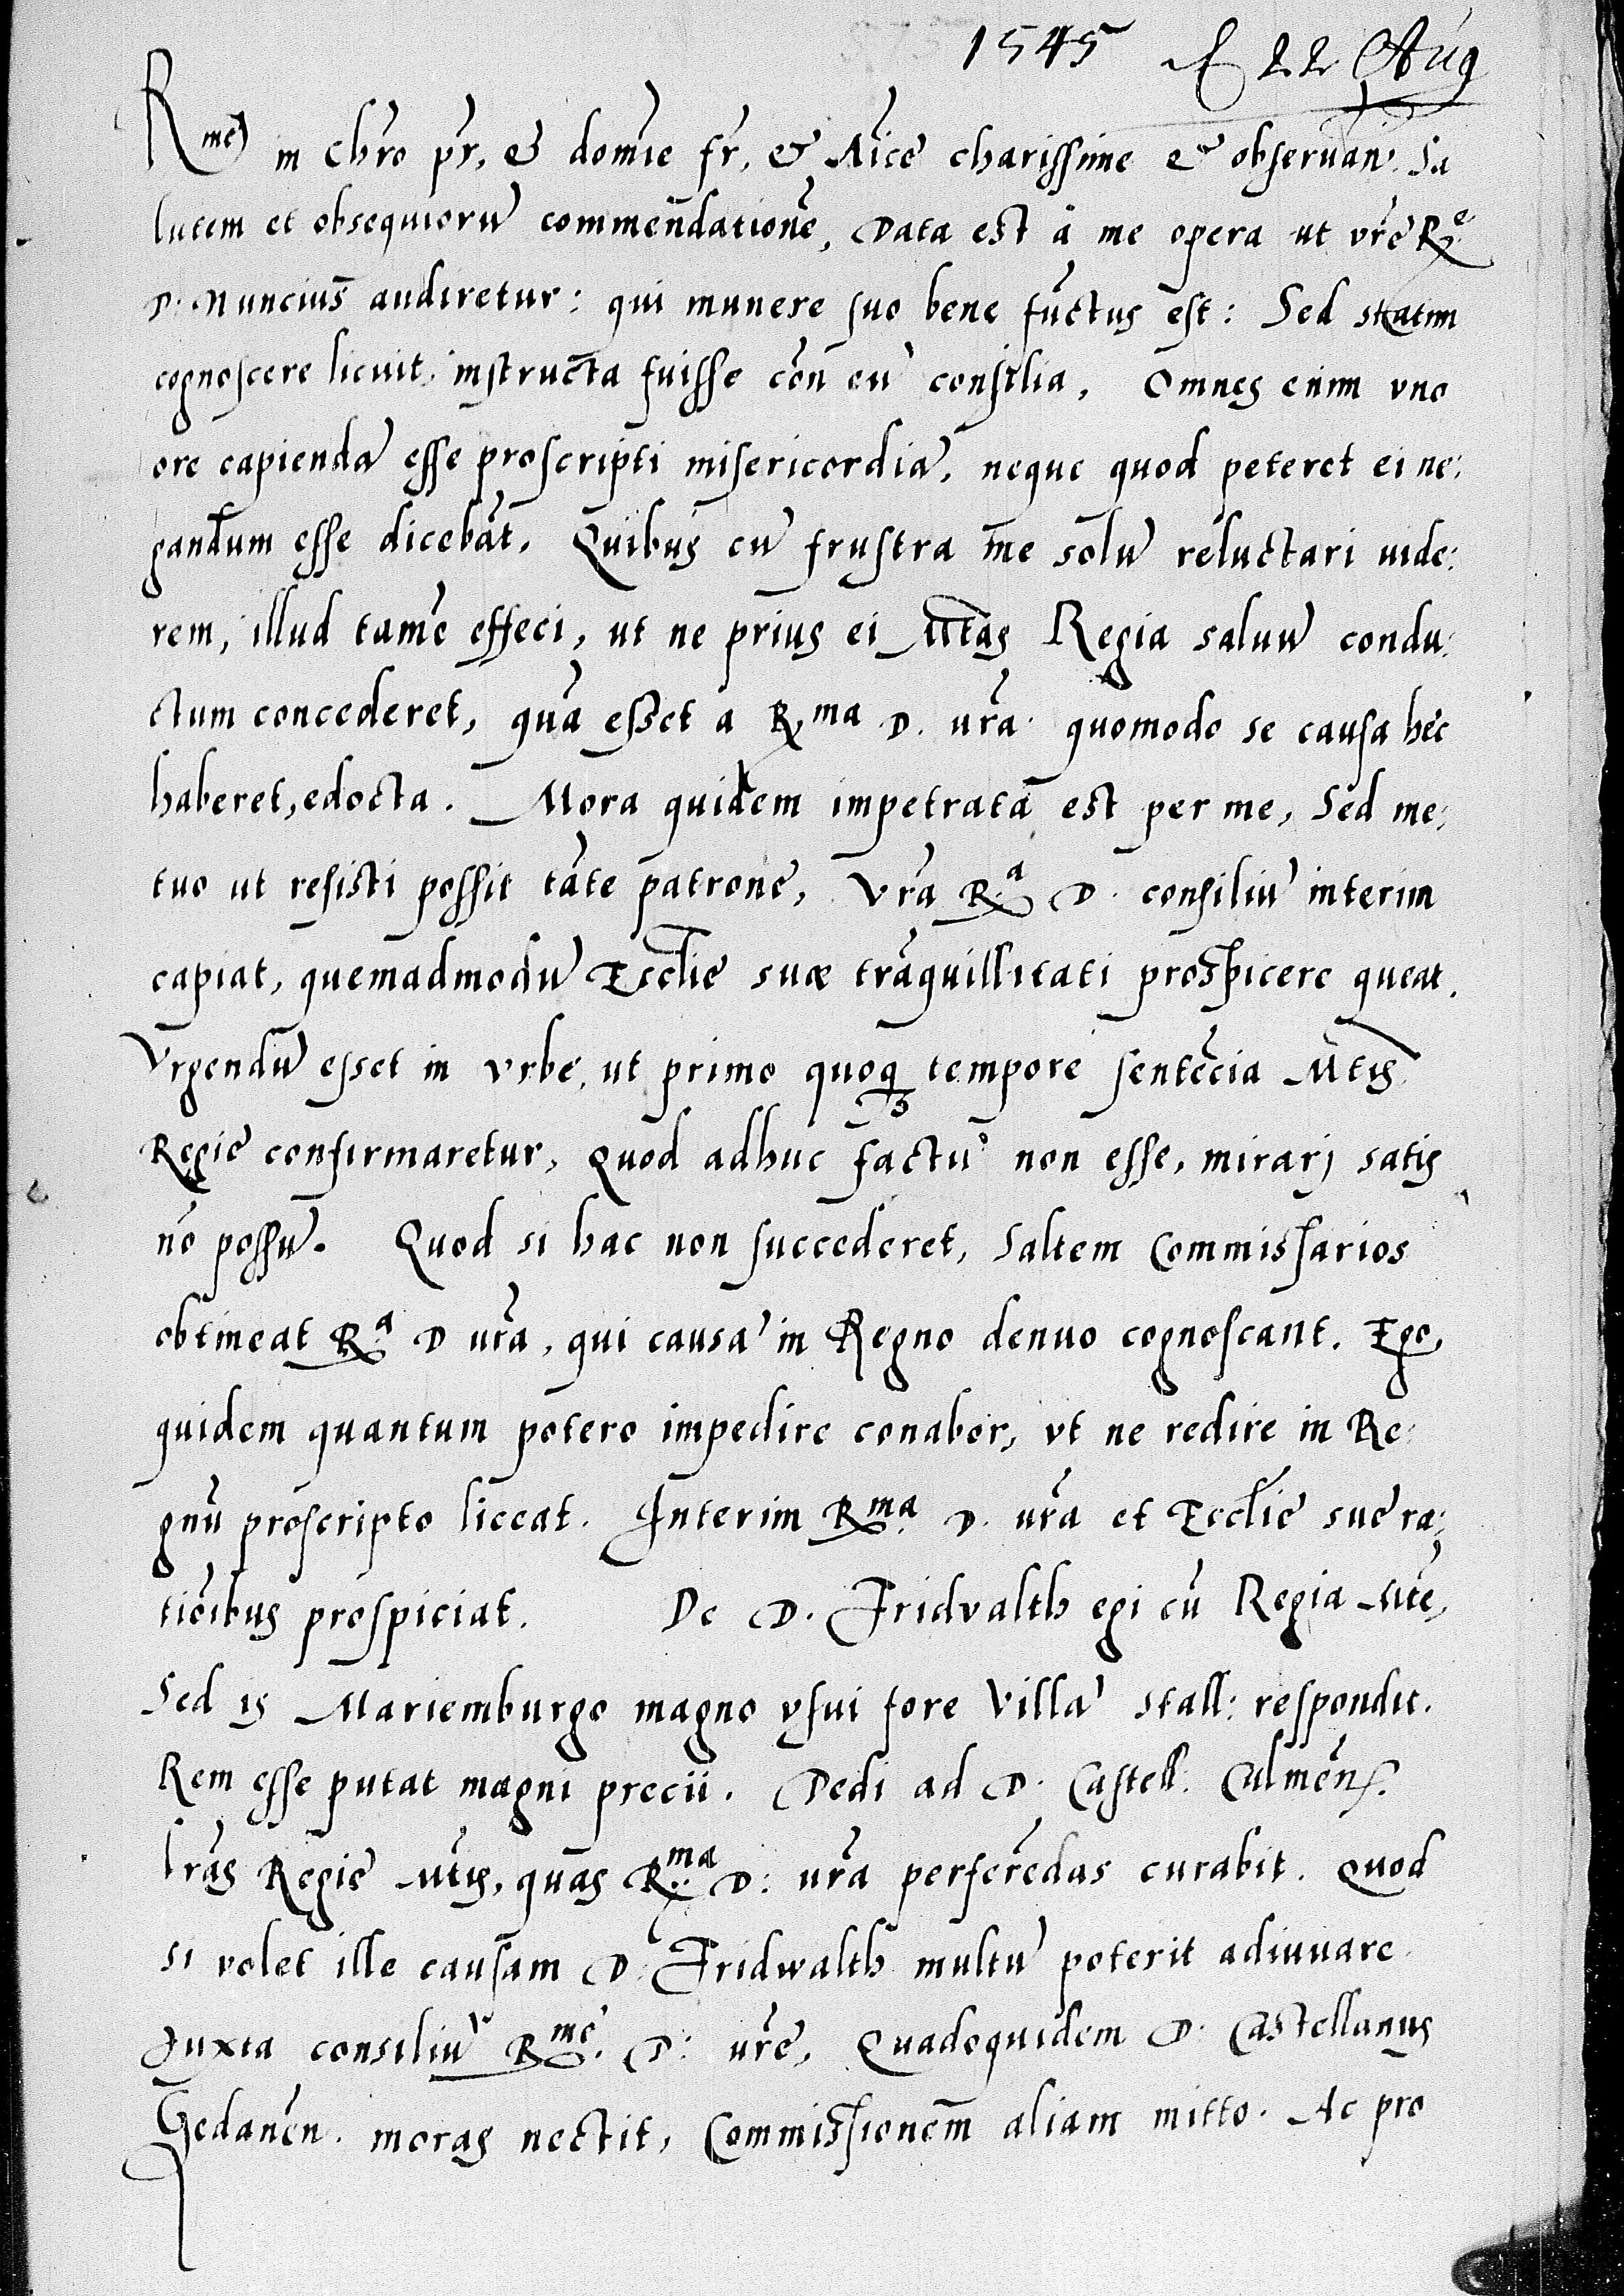 1545 22 Aug
Rme in Chr̃o pr̃, & domĩe fr̃, & Aĩce charissime & obseruan̄. Sa
lutem et obsequiorū commendationē, Data est à me opera ut vr̃e R.e
D. Nuncius audiretur: qui munere suo bene fũctus est: Sed statim
cognoscere licuit, instructa fuisse cõn eū consilia, Omnes enim vno
ore capiendā esse proscripti misericordiā, neque quod peteret ei ne:
gandum esse dicebãt. Quibus cū frustra me solū reluctari uide:
rem, illud tamẽ effeci, ut ne prius ei Mtas Regia saluū condu:
ctum concederet, quã esset a Rma D. ur̃a quomodo se causa hẽc
haberet, edocta. Mora quidem impetrata est per me, Sed me:
tuo ut resisti possit tãte patronē, Vr̃a R.a D. consiliū interim
capiat, quemadmodū Ecclie suæ trãquillitati prospicere queat.
Vrgendū esset in vrbe, ut primo quoq; tempore sentẽcia Mtis
Regiē confirmaretur, Quod adhuc factū non esse, mirarj satis
nõ possū. Quod si hac non succederet, Saltem Commissarios
obtineat R.a D ur̃a, qui causā in Regno denuo cognoscant. Ego,
quidem quantum potero impedire conabor, vt ne redire in Re:
gnũ proscripto liceat. Interim Rma D. ur̃a et Ecclie suē ra:
tiõibus prospiciat. De D. Fridvalth egi cũ Regia Mte,
Sed is Mariemburgo magno vsui fore Villā Stall: respondit.
Rem esse putat magni precii. Dedi ad D. Castell. Culmẽn̄s.
lrãs Regiē Mtis, quas R.ma D: ur̃a perferẽdas curabit. Quod
si volet ille causam D. Fridwalth multū poterit adiuuare
Juxta consiliū R.me D: ur̃e, Quãdoquidem D. Castellanus
Gedanẽn. moras nectit, Commissionem aliam mitto. Ac pro